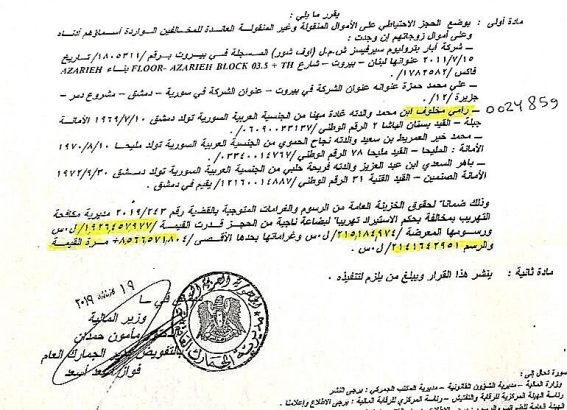 يقرر ما يلي :
مادة أولى : يوضع الحجز الاحتياطي على الأموال المنقولة وغير المنقولة العائدة للمخالفين الواردة أسماؤهم أدناه
وعلى أموال زوجاتهم إن وجدت :
ــ شركة آبار بتروليوم سيرفيسز ش.م.ل (أوف شور) المسجلة في بيروت برقم /١٨٠٥٣١١/ تاريخ
٢٠١١/٧/١٥ عنوانها لبنان – بيروت – شارع AZARIEH بناء FLOOR- AZARIEH BLOCK 03.5 + TH
فاكس /١٧٨٢٥٨٢/
ــ علي محمد حمزة عنوانه عنوان الشركة في بيروت – عنوان الشركة في سورية – دمشق – مشروع دمر –
جزيرة /١٢/.
ــ رامي مخلوف ابن محمد والدته غادة مهنا من الجنسية العربية السورية تولد دمشق ١٩٦٦/٧/١٠ الأمانة
جبلة – القيد بستان الباشا ٢ الرقم الوطني /٠٦٠٩٠٠٣٣١٣٧/.
0024859
ــ محمد خير العمريط بن سعيد والدته نجاح الحموي من الجنسية العربية السورية تولد مليحا ١٩٧٠/٨/١٠
الأمانة : الحليا – القيد مليحا ٧٨ الرقم الوطني /٠٣٣٤٠٠١٤٧٦٧/.
ــ باهر السعدي ابن عبد العزيز والدته فريحة حلبي من الجنسية العربية السورية تولد دمشق ١٩٧٢/٩/٣٠
الأمانة الصنمين – القيد القنية ٣١ الرقم الوطني /١٢١٦٠٠١٤٨٨٧/ يقيم في دمشق.
وذلك ضماناً لحقوق الخزينة العامة من الرسوم والغرامات المتوجبة بالقضية رقم ٢٠١٩/٢٤٣ مديرية مكافحة
التهريب بمخالفة بحكم الاستيراد تهريباً لبضاعة ناجية من الحجز قدرت القيمة /١٩٢٦٤٥٧٩٧٧/ ل.س
ورسومها المعرضة /٢١٥,١٨٤,٩٧٤/ ل.س وغراماتها بحدها الأقصى /٨٥٦٦٥٧١,٨٠٤/ مرة القيمة
والرسم /٢١٤١٦٤٢٩٥١/ ل.س .
مادة ثانية : ينشر هذا القرار ويبلغ من يلزم لتنفيذه .
دمشق في ١٩ ٢٠١٩
وزير المالية
مأمون حمدان
بالتفويض مدير الجمارك العام
فواز أسعد أسعد
صورة تحال إلى :
وزارة المالية – مديرية الشؤون القانونية – مديرية المكتب الجمركي : يرجى النشر
رئاسة الهيئة المركزية للرقابة والتفتيش – رئاسة المركزي للرقابة المالية : يرجى الاطلاع وإعلامنا.